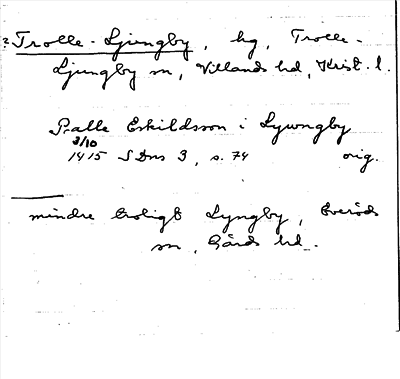 2 Trolle-Ljungby, hg, Trolle-
Ljungby sn, Villands hd, Krist. l.
Palle Eskildsson i Lywngby
3/10
1415 SDns 3, s. 74 orig.
mindre troligt Lyngby, Everöds
sn, Gärds hd.